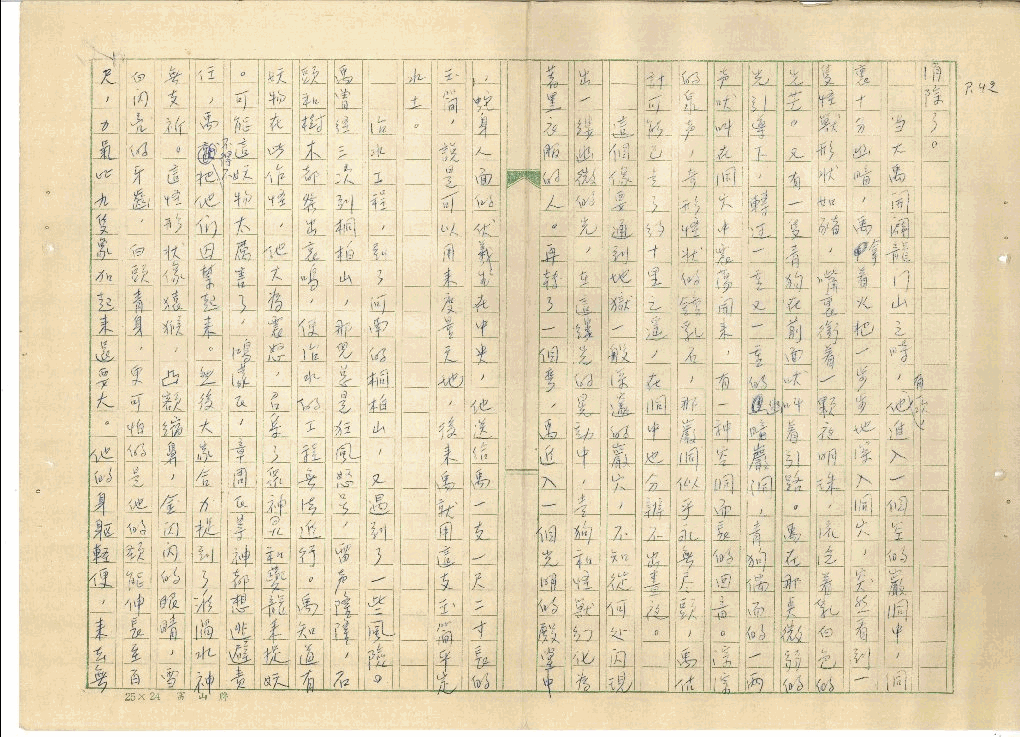 P.42
消除了。
當大禹開闢龍门山之時，他進入一個空的巖洞中，洞
裏十分幽暗，禹拿着火把一步步地深入洞穴，突然看到一
隻怪獸形状如豬，嘴裏銜着一顆夜明珠，流急着乳白色的
光芒。又有一隻青狗在前面吠叫着引路。禹在那臭微弱的
光引導下，轉过一重又一重的幽暗巖洞，青狗偶而的一兩
声吠叫在洞穴中裏蕩開来，有一种空洞而長的回音。深深
的泉声，奇形怪状的鐘乳石，那巖洞似乎永無尽頭，禹估
計可能已走了约十里之遥，在洞中也分辨不出晝夜。
這個像要通到地獄一般深邃的巖穴，不知從何处闪現
出一線幽微的光，在這線光的晃动中，青狗和怪獸幻化為
着黑衣服的人。再轉了一個彎，禹近入一個光明的殿堂中
，蛇身人面的伏羲坐在中央，他送给禹一支一尺二寸長的
玉簡，說是可以用来度量天地，後来禹就用這支玉簡平定
水土。
治水工程，到了河南的桐柏山，又遇到了一些風險。
禹曾经三次到桐柏山，那兒总是狂風怒号，雷声隆隆，石
頭和樹木都發出哀鳴，使治水的工程無法近行。禹知道有
妖物在此作怪，他大為震怒，召集了眾神灵和夔龍来捉妖
。可能這妖物太厲害了，鴻濛氏，章商氏等神都想逃避責
任，禹不得不把他们囚禁起来。然後大家合力捉到了淮渦水神
無支祈。這怪形状像猿猴，凸額縮鼻，金闪闪的眼睛，雪
白闪亮的牙齒，白頭青身，更可怕的是他的頸能伸長至百
尺，力氣比九隻象加起来還要大。他的身軀輕便，来去無
25×24